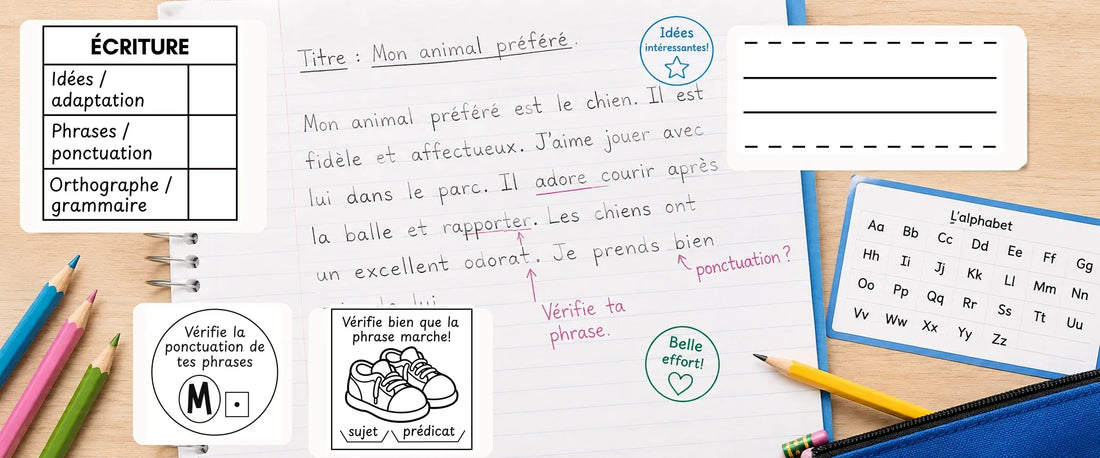 ÉCRITURE
Idées /
adaptation
Phrases /
ponctuation
Orthographe /
grammaire
Titre : Mon animal préféré.
Mon animal préféré est le chien. Il est
fidèle et affectueux. J'aime jouer avec
lui dans le parc. Il adore courir après
la balle et rapporter. Les chiens ont
un excellent odorat. Je prends bien
ponctuation ?
Vérifie ta
phrase.
Idées
intéressantes!
Belle
effort!
Vérifie la
ponctuation de
tes phrases
M .
Vérifie bien que la
phrase marche!
sujet prédicat
L'alphabet
Aa Bb Cc Dd Ee Ff Gg
Hh Ii Jj Kk Ll Mm Nn
Oo Pp Qq Rr Ss Tt Uu
Vv Ww Xx Yy Zz